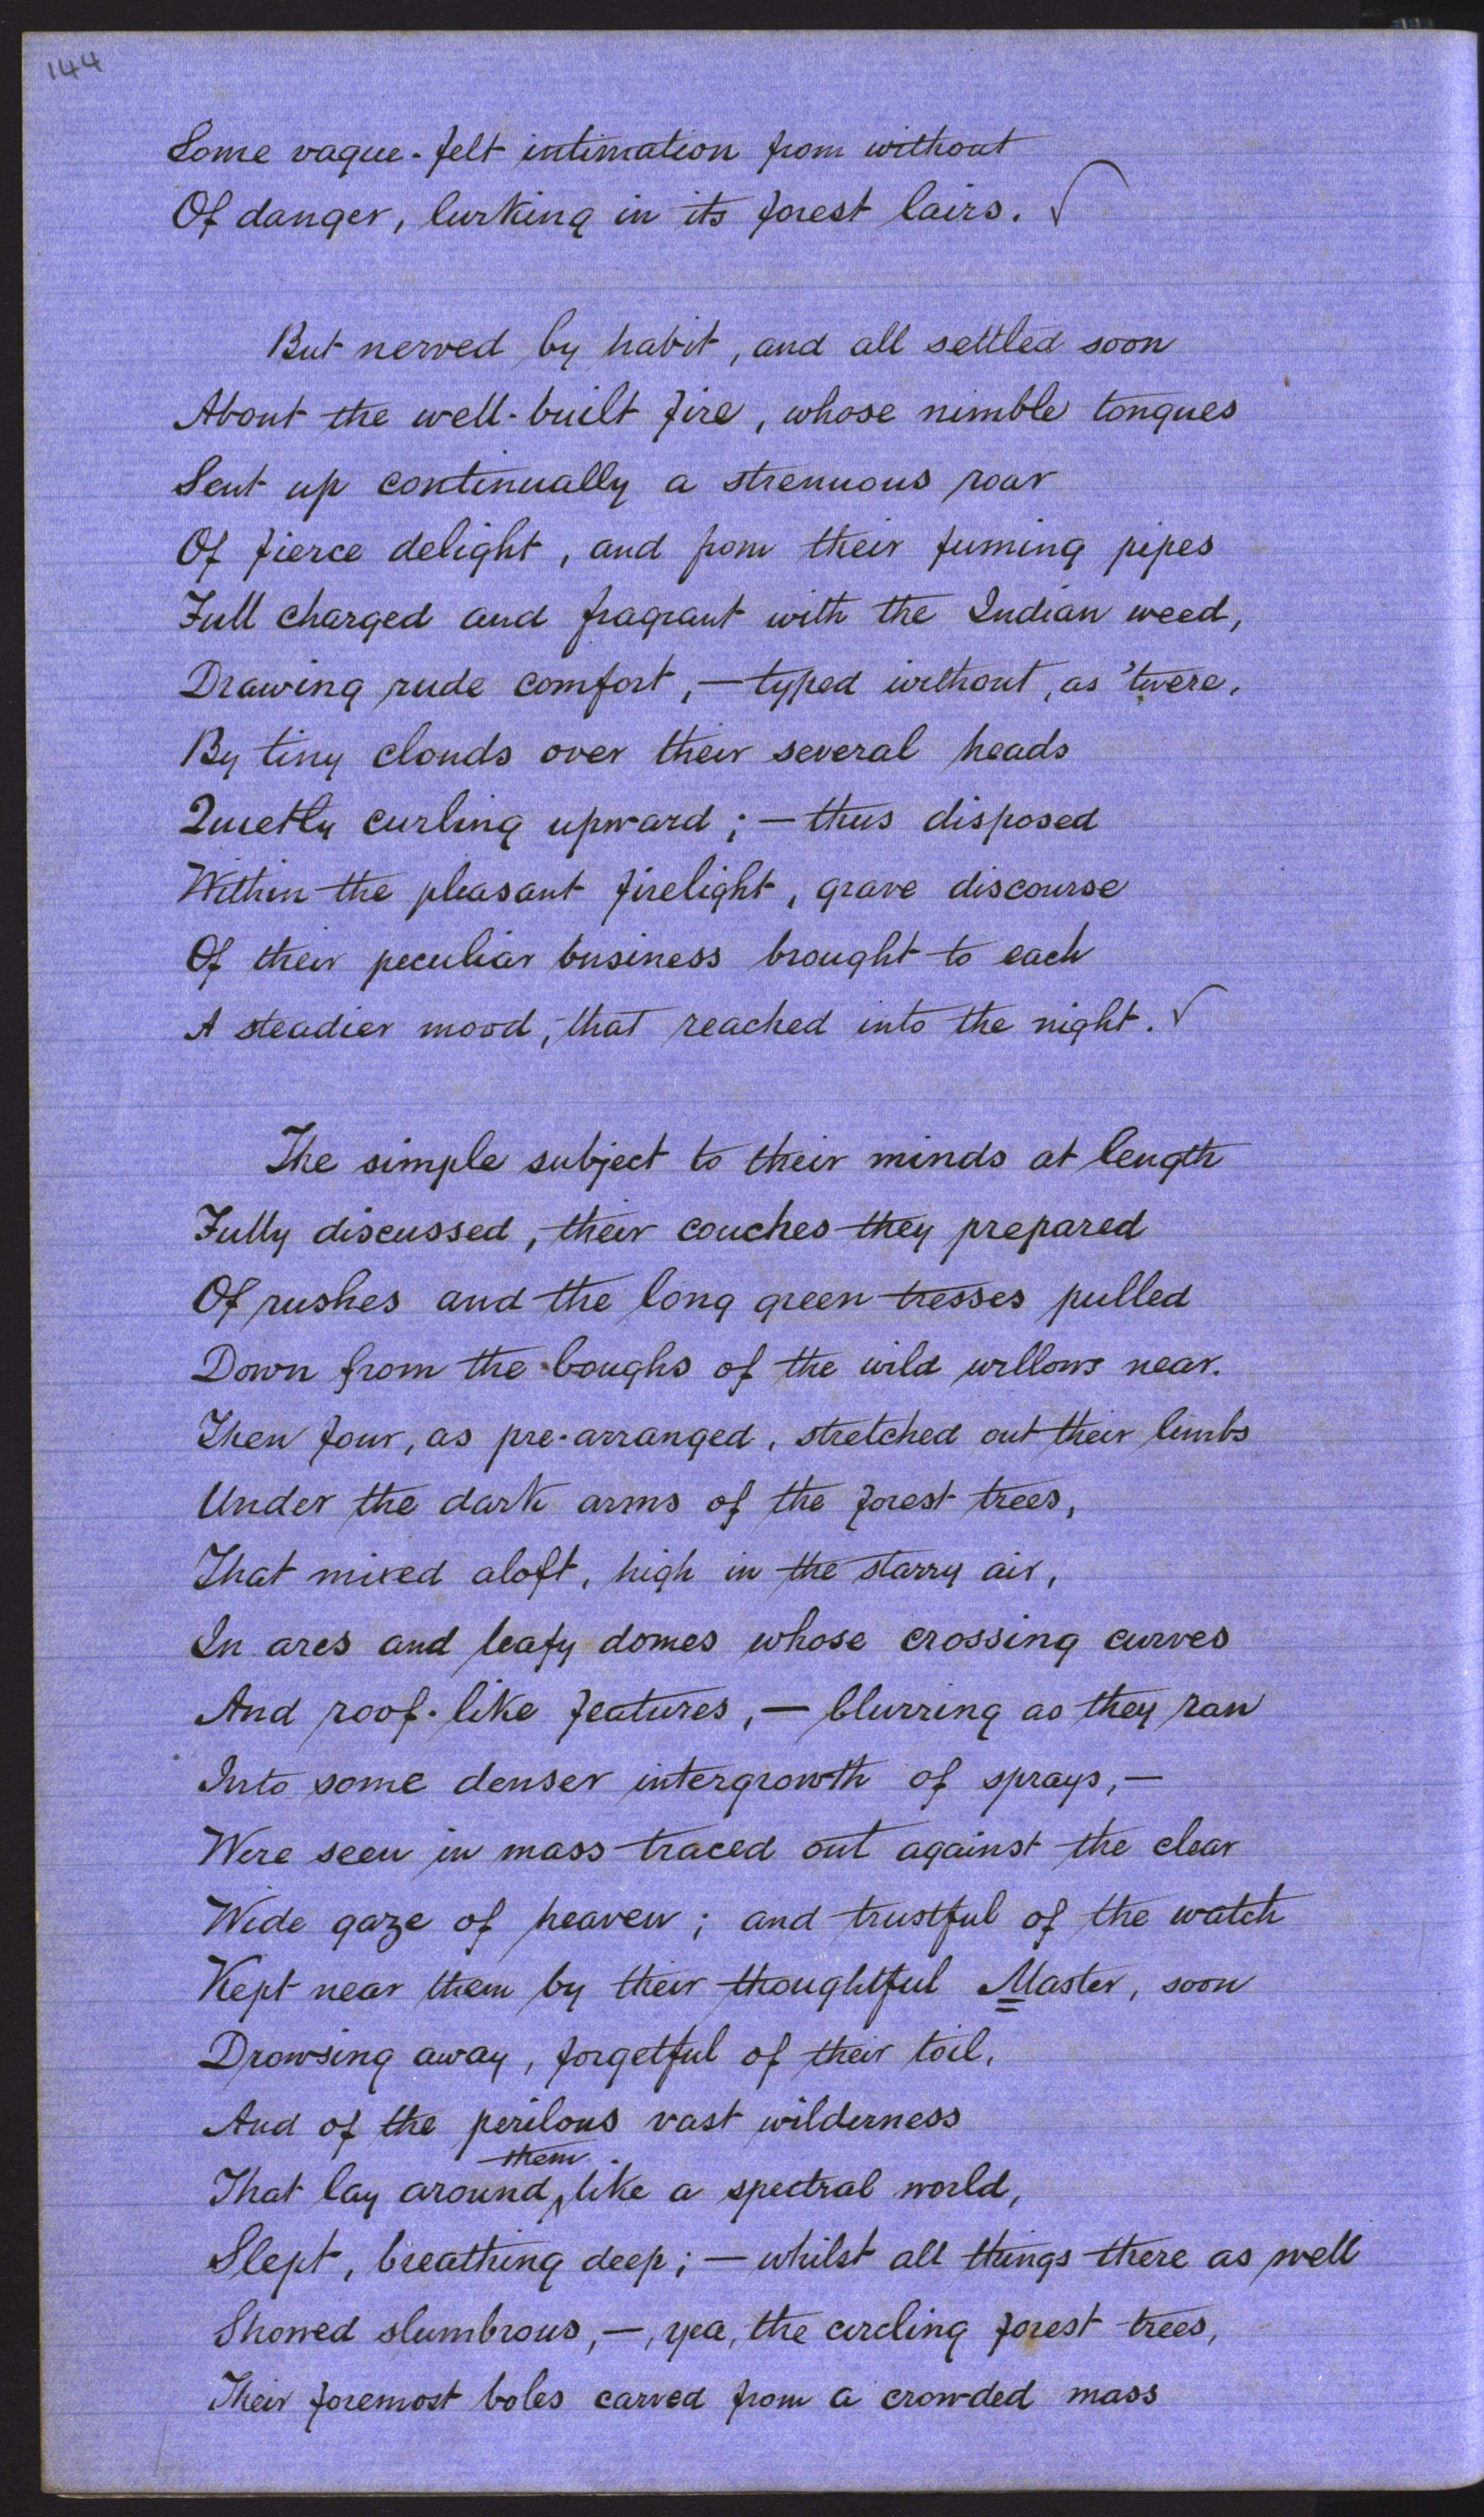 144
Some vague-felt intimation from without
Of danger, lurking in its forest lairs. √
But nerved by habit, and all settled soon
About the well-built fire, whose nimble tongues
Sent up continually a strenuous roar
Of fierce delight, and from their fuming pipes
Full charged and fragrant with the Indian weed,
Drawing rude comfort, — typed without, as 'twere,
By tiny clouds over their several heads
Quietly curling upward; — thus disposed
Within the pleasant firelight, grave discourse
Of their peculiar business brought to each
A steadier mood, that reached into the night. √
The simple subject to their minds at length
Fully discussed, their couches they prepared
Of rushes and the long green tresses pulled
Down from the boughs of the wild willows near.
Then four, as pre-arranged, stretched out their limbs
Under the dark arms of the forest trees,
That mixed aloft, high in the starry air,
In arcs and leafy domes whose crossing curves
And roof-like features, — blurring as they ran
Into some denser intergrowth of sprays, —
Were seen in mass traced out against the clear
Wide gaze of heaven; and trustful of the watch
Kept near them by their thoughtful Master, soon
Drowsing away, forgetful of their toil,
And of the perilous vast wilderness
them
That lay around‸ like a spectral world,
Slept, breathing deep; — whilst all things there as well
Showed slumbrous, —, yea, the circling forest trees,
Their foremost boles carved from a crowded mass